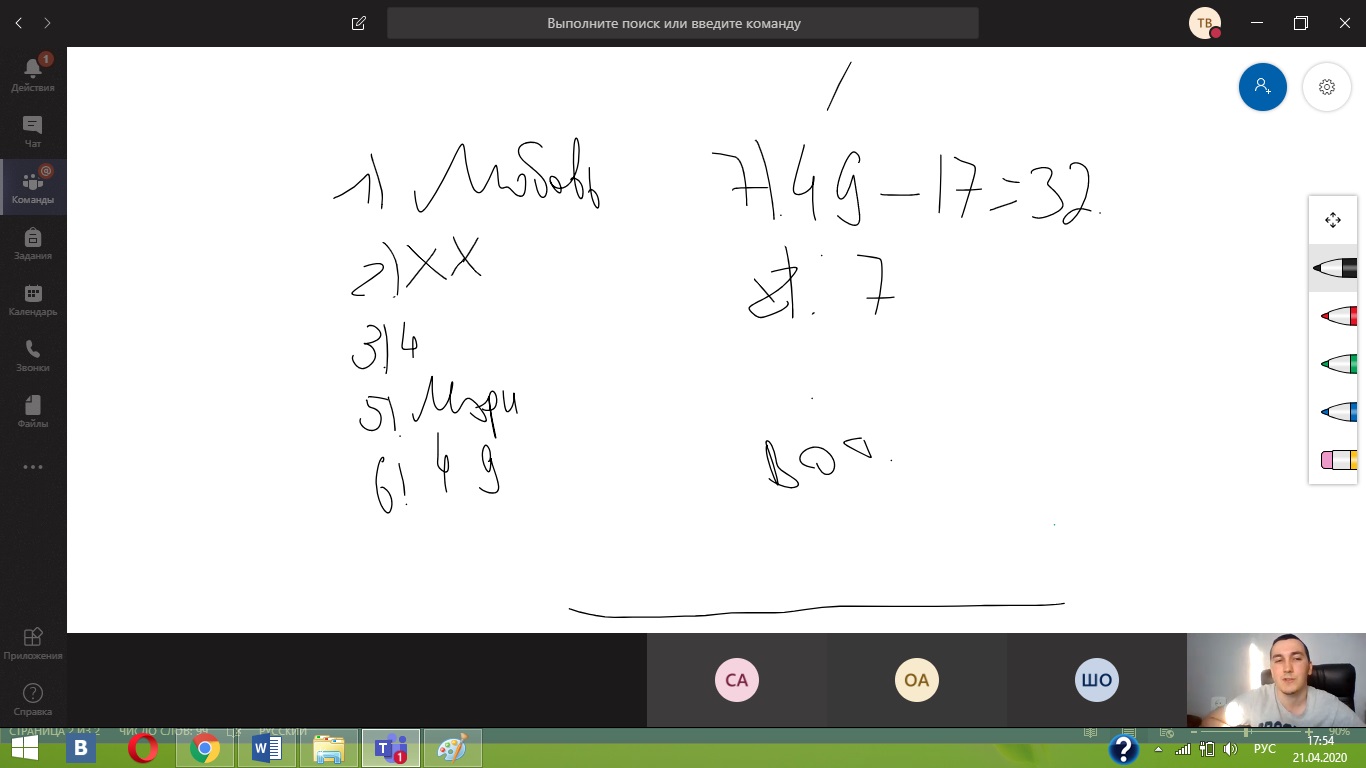 Выполните поиск или введите команду
ТВ
1
Действия
Чат
@
Команды
Задания
Календарь
Звонки
Файлы
Приложения
Справка
1) Любовь
2) XX
3) 4
5) Мэри
6) 49
7) 49 – 17 = 32
7
СА
ОА
ШО
СТРАНИЦА 2 ИЗ 2 ЧИСЛО СЛОВ: 99 РУССКИЙ
90%
B
W
T
1
?
РУС
17:54
21.04.2020